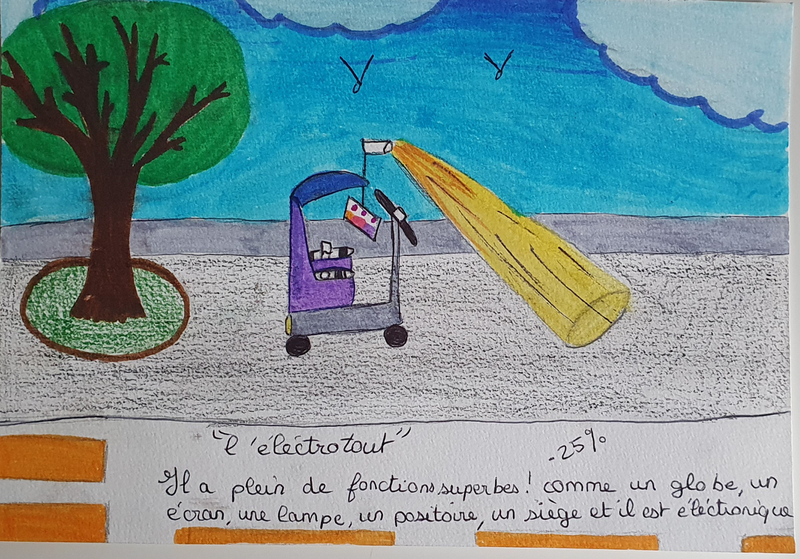 "l'éléctrotout"
-25%
Il a plein de fonctions superbes! comme un globe, un
écran, une lampe, un positoire, un siège et il est éléctronique